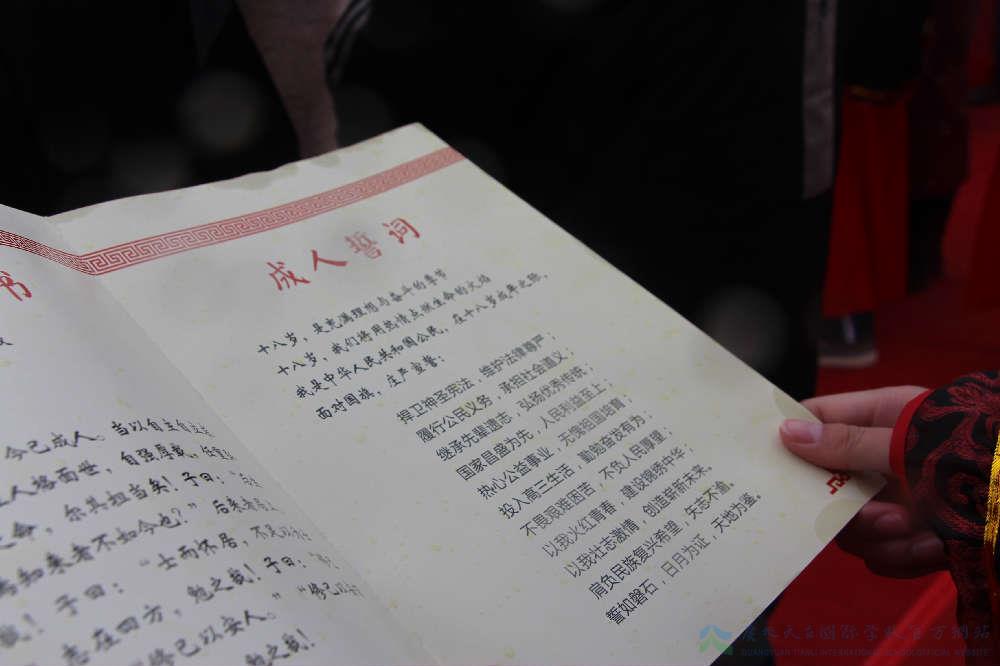 书
今已成人。当以自立自
人格面世，自强厚载，
之命，尔其担当矣！子曰：“
焉知来者不如今也？”后来者
哉！子曰：“士而怀居，不足以
志在四方，勉之哉！子曰：
修己以安人。”“修己以
勉之哉！
成人誓词
十八岁，是充满理想与奋斗的季节
十八岁，我们将用热情点燃生命的火焰
我是中华人民共和国公民，在十八岁成年之际，
面对国旗，庄严宣誓：
捍卫神圣宪法，维护法律尊严；
履行公民义务，承担社会道义；
继承先辈遗志，弘扬优秀传统；
国家昌盛为先，人民利益至上；
热心公益事业，无愧祖国培育；
投入高三生活，勤勉奋发有为；
不畏艰难困苦，不负人民厚望；
以我火红青春，建设锦绣中华；
以我壮志激情，创造崭新未来。
肩负民族复兴希望，矢志不渝。
誓如磐石，日月为证，天地为鉴。
广元天立国际学校官方网站
GUANGYUAN TIANLI INTERNATIONAL SCHOOL OFFICIAL WEBSITE